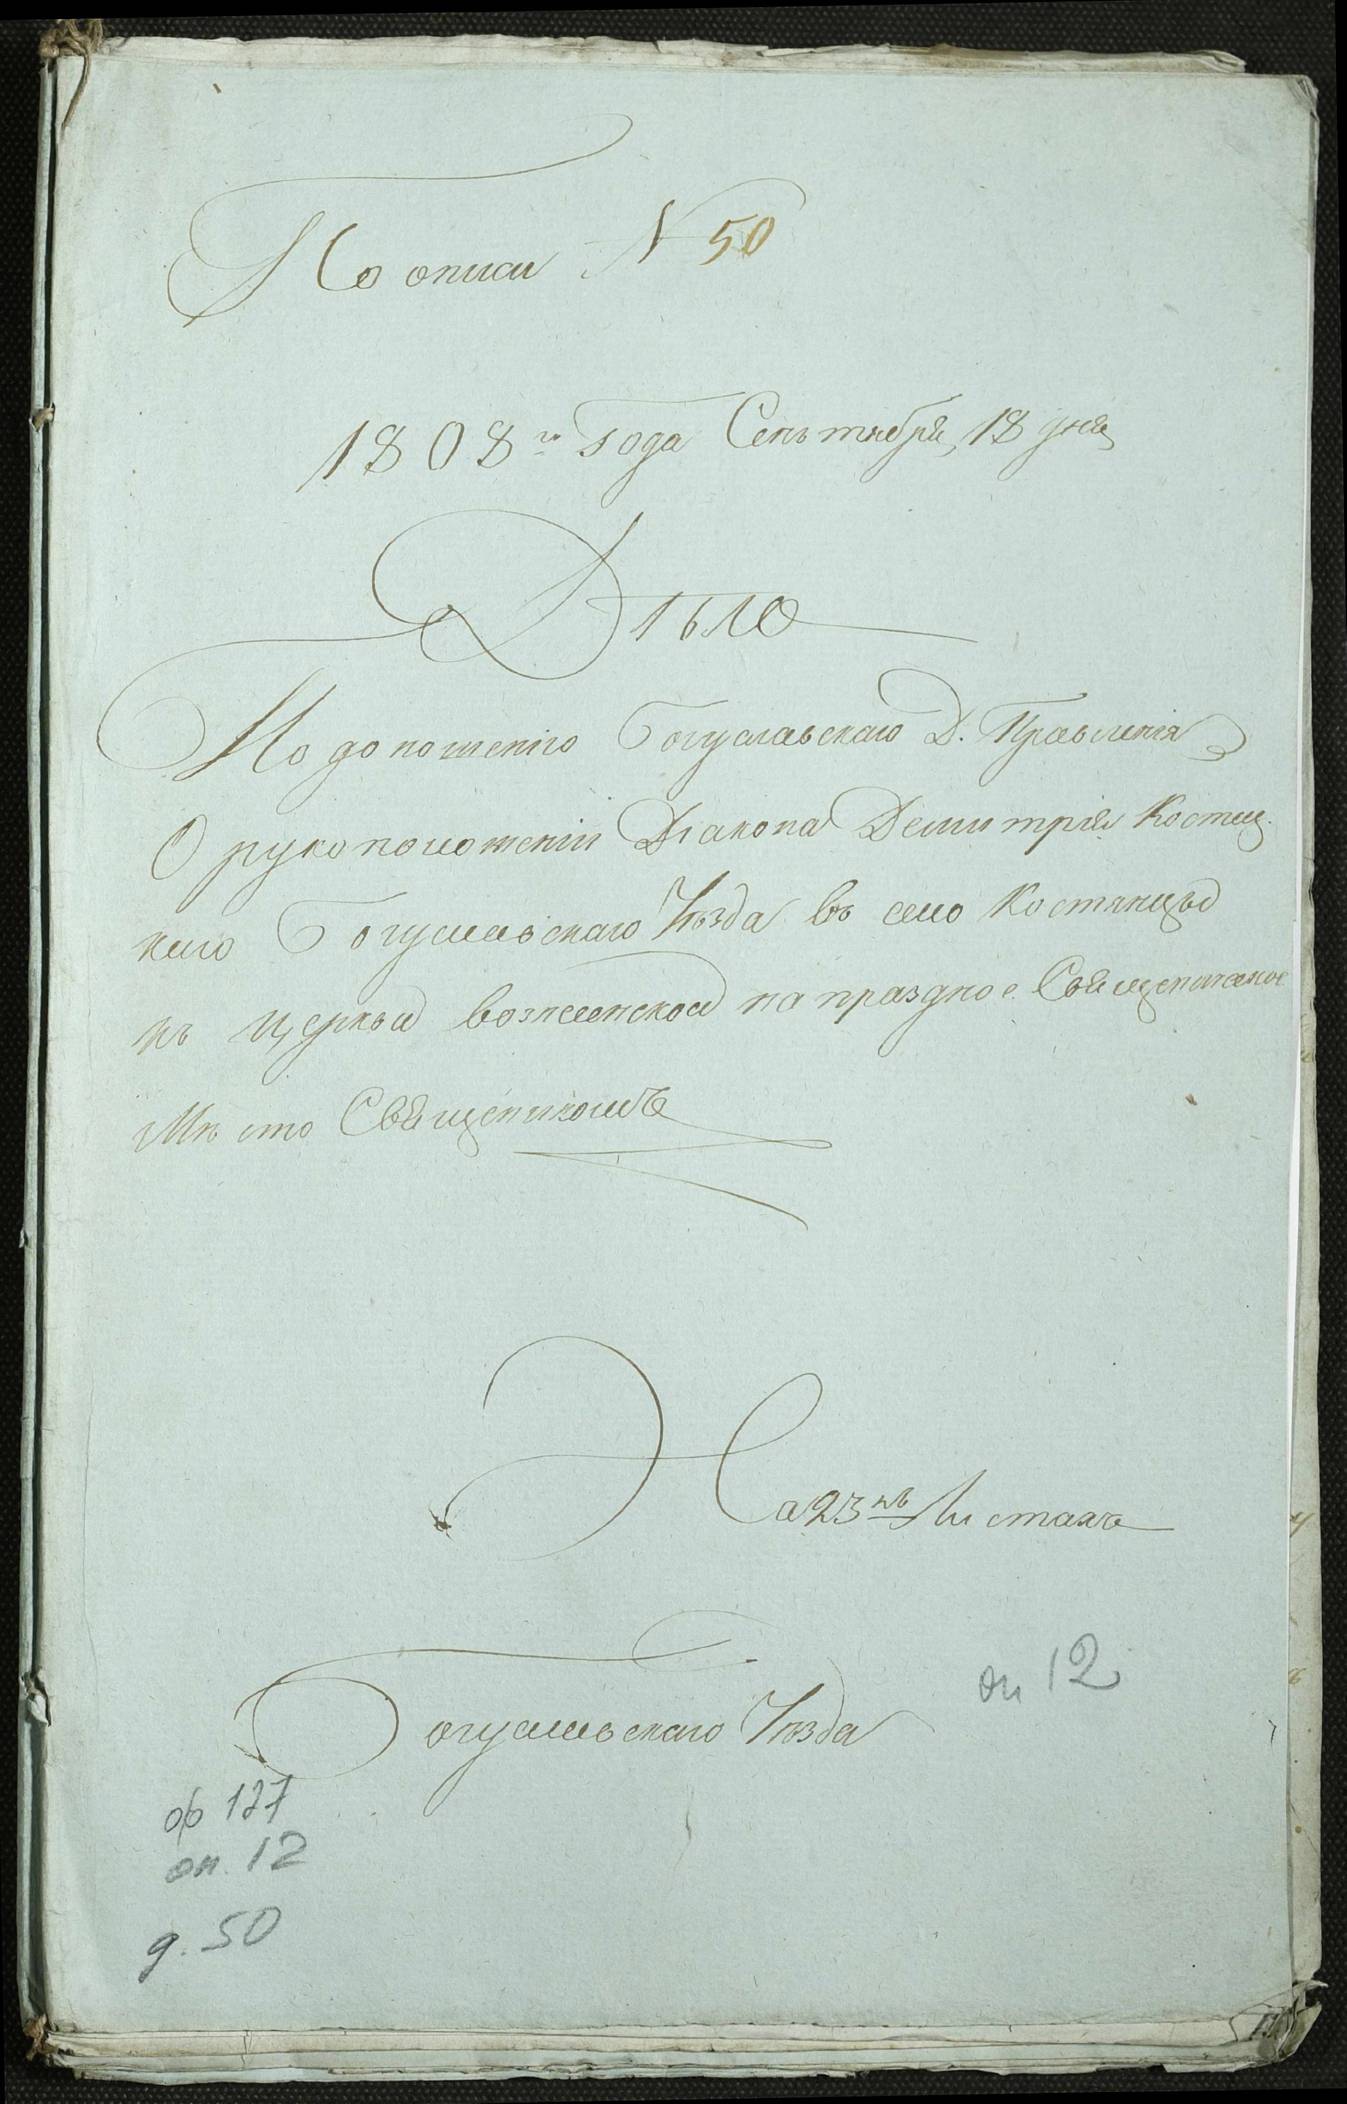 По описи № 50
1808го Года Сентября 18 дня
Дѣло
По доношенію Богуславскаго Д. Правленія
О рукоположеніи Діакона Демитрія Костец
каго Богуславскаго Уѣзда въ село Костянецъ
къ церквѣ вознесенской на праздное Священическое
Мѣсто Священникомъ
На 23хъ Листахъ
Богуславскаго Уѣзда
оп 12
ф 127
оп. 12
д. 50